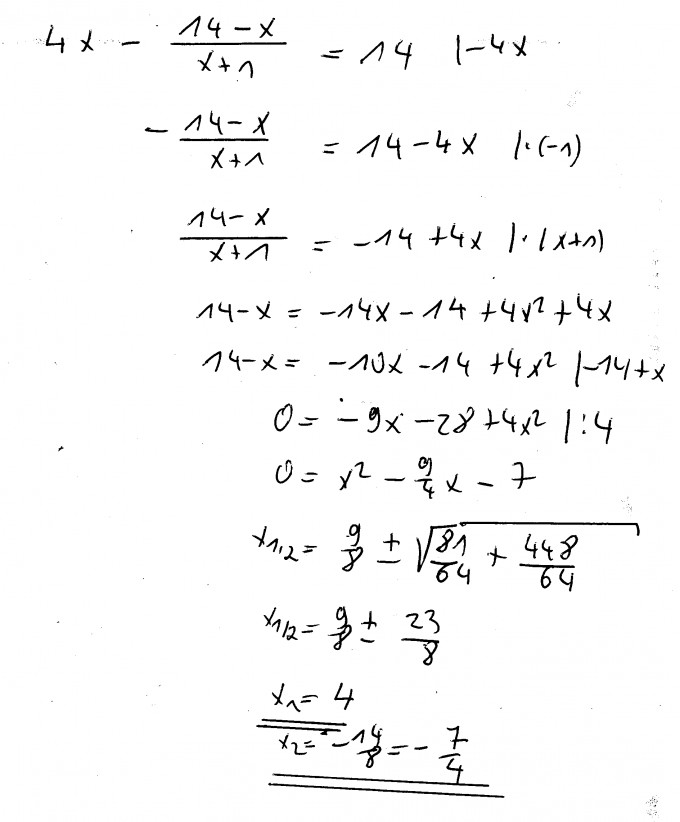 4x - (14-x)/(x+1) = 14 |-4x
- (14-x)/(x+1) = 14-4x |·(-1)
(14-x)/(x+1) = -14+4x |·(x+1)
14-x = -14x-14+4x²+4x
14-x = -10x-14+4x² |-14+x
0 = -9x-28+4x² |:4
0 = x² - 9/4 x - 7
x1,2 = 9/8 ± √(81/64 + 448/64)
x1/2 = 9/8 ± 23/8
x1 = 4
x2 = -14/8 = -7/4